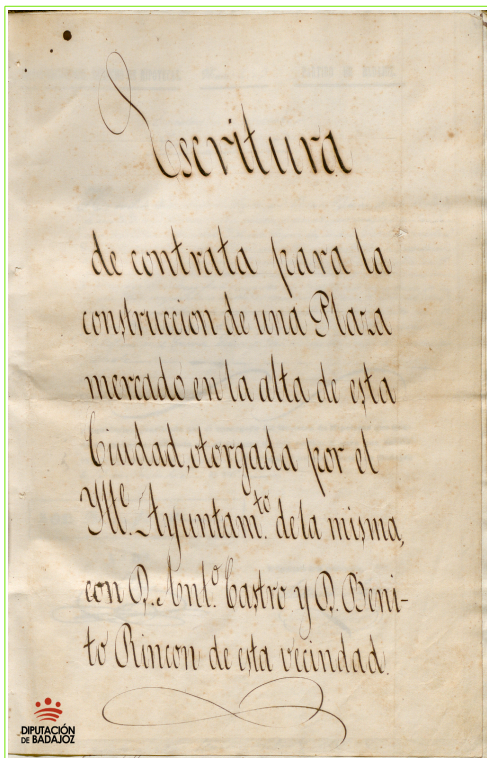 Escritura
de contrata para la
construccion de una Plaza
mercado en la alta de esta
Ciudad, otorgada por el
Yllᵉ. Ayuntamᵗᵒ. de la misma,
con D. Antº. Castro y D. Beni-
to Rincon de esta vecindad.
DIPUTACIÓN
DE BADAJOZ